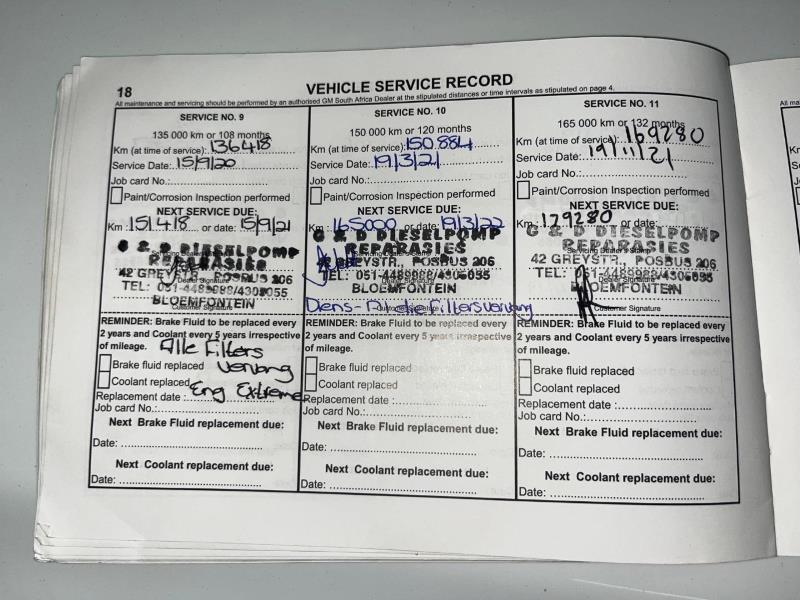 18
VEHICLE SERVICE RECORD
All maintenance and servicing should be performed by an authorised GM South Africa Dealer at the stipulated distances or time intervals as stipulated on page 4.
SERVICE NO. 9
135 000 km or 108 months
Km (at time of service): 136418
Service Date: 15/9/20
Job card No.:
Paint/Corrosion Inspection performed
NEXT SERVICE DUE:
Km : 151.418 or date: 15/9/21
G & D DIESELPOMP
REPARASIES
42 GREYSTR., POSBUS 206
TEL: 051-4489988/4306055
BLOEMFONTEIN
Customer Signature
REMINDER: Brake Fluid to be replaced every
2 years and Coolant every 5 years irrespective
of mileage. Alle Filters
Brake fluid replaced Vervang
Coolant replaced Eng Extreme
Replacement date :
Job card No.:
Next Brake Fluid replacement due:
Date:
Next Coolant replacement due:
Date:
SERVICE NO. 10
150 000 km or 120 months
Km (at time of service): 150.884
Service Date: 19/3/21
Job card No.:
Paint/Corrosion Inspection performed
NEXT SERVICE DUE:
Km : 165000 or date: 19/3/22
G & D DIESELPOMP
REPARASIES
42 GREYSTR., POSBUS 206
TEL: 051-4489988/4306055
BLOEMFONTEIN
Diens - Alle Filters vervang
REMINDER: Brake Fluid to be replaced every
2 years and Coolant every 5 years irrespective
of mileage.
Brake fluid replaced
Coolant replaced
Replacement date :
Job card No.:
Next Brake Fluid replacement due:
Date:
Next Coolant replacement due:
Date:
SERVICE NO. 11
165 000 km or 132 months
Km (at time of service): 169280
Service Date: 19/11/21
Job card No.:
Paint/Corrosion Inspection performed
NEXT SERVICE DUE:
Km : 179280 or date:
G & D DIESELPOMP
REPARASIES
42 GREYSTR., POSBUS 206
TEL: 051-4489988/4306055
BLOEMFONTEIN
Customer Signature
REMINDER: Brake Fluid to be replaced every
2 years and Coolant every 5 years irrespective
of mileage.
Brake fluid replaced
Coolant replaced
Replacement date :
Job card No.:
Next Brake Fluid replacement due:
Date:
Next Coolant replacement due:
Date: